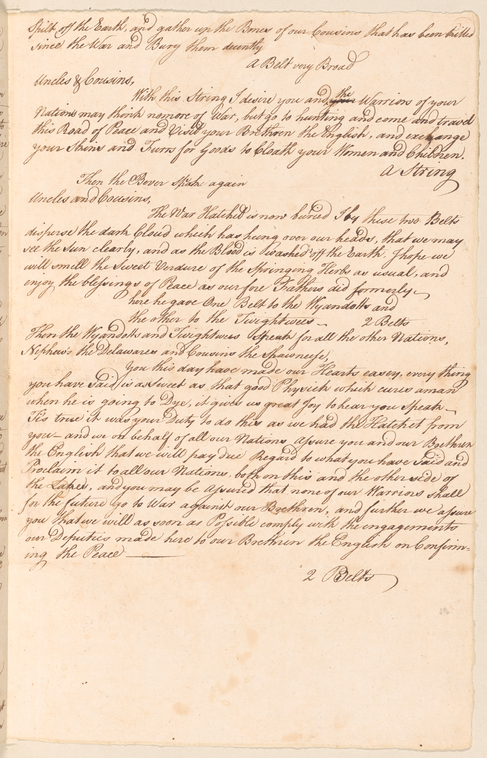 Spilt off the Earth, and gather up the Bones of our Cousins that has been killed
since the War and Bury them decently
A Belt very Broad
Uncles & Cousins,
With this String I desire you and the Warriors of your
Nations may think no more of War, but go to hunting and come and travel
this Road of Peace and Visit your Brethren the English, and exchange
your Skins and Furrs for Goods to Cloath your Women and Children.
A String
Then the Bever Spake again
Uncles and Cousins,
The War Hatchet is now buried I by these two Belts
disperse the dark Cloud which has hung over our heads, that we may
see the Sun clearly, and as the Blood is washed off the Earth I hope we
will smell the Sweet Verdure of the Springing Herbs as usual, and
enjoy the blessings of Peace as our fore Fathers did formerly
here he gave One Belt to the Wyandotts and
the other to the Twightwees — 2 Belts
Then the Wyandotts and Twightwees Speak for all the other Nations,
Nephews the Delawares and Cousins the Shawnese,
You this day have made our Hearts easey, every thing
you have Said is as Sweet as that good Physick which cures a man
when he is going to Dye, it gives us great Joy to hear you Speak —
Tis true it was your Duty to do this as we had the Hatchet from
you — and we on behalf of all our Nations assure you and our Brethren
the English that we will pay due Regard to what you have Said and
Proclaim it to all our Nations, both on this and the other side of
the Lakes, and you may be assured that none of our Warriors shall
for the future go to War against our Brethren, and further we assure
you that we will as soon as Possible comply with the engagements
our Deputies made here to our Brethren the English on Confirm-
ing the Peace —
2 Belts